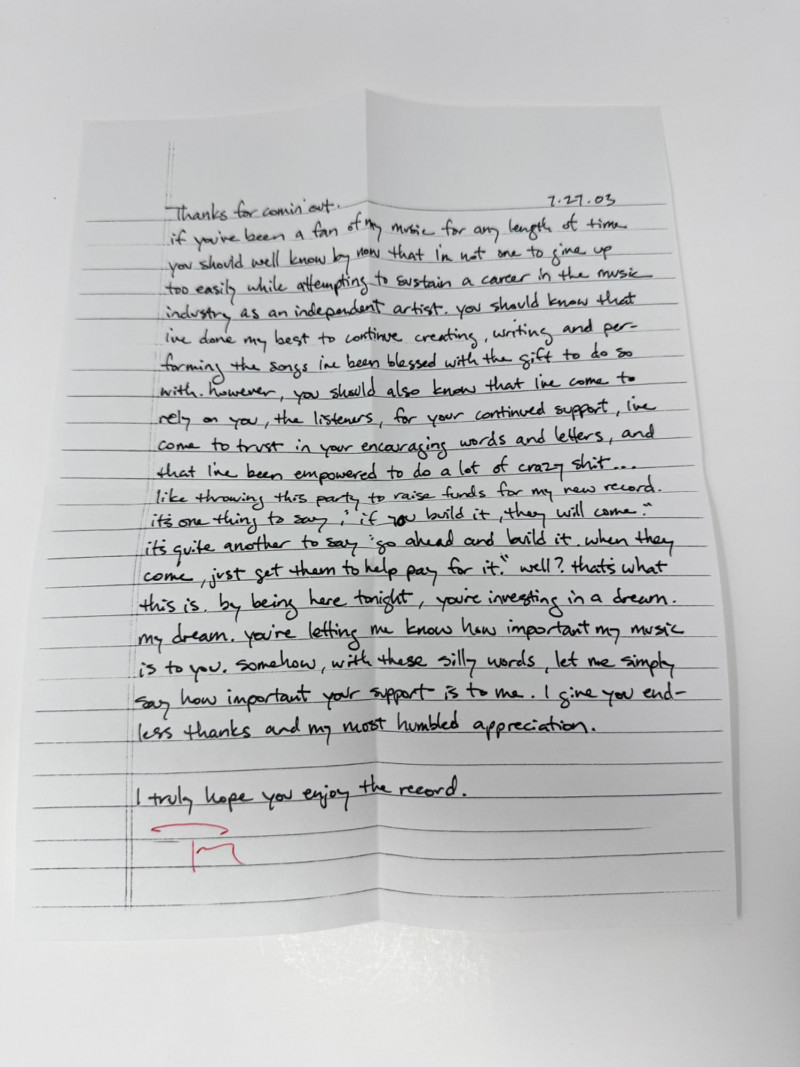 Thanks for comin' out.
7.27.03
if you've been a fan of my music for any length of time
you should well know by now that i'm not one to give up
too easily while attempting to sustain a career in the music
industry as an independent artist. you should know that
i've done my best to continue creating, writing and per-
forming the songs i've been blessed with the gift to do so
with. however, you should also know that i've come to
rely on you, the listeners, for your continued support, i've
come to trust in your encouraging words and letters, and
that i've been empowered to do a lot of crazy shit...
like throwing this party to raise funds for my new record.
it's one thing to say, "if you build it, they will come."
it's quite another to say "go ahead and build it. when they
come, just get them to help pay for it." well? that's what
this is. by being here tonight, you're investing in a dream.
my dream. you're letting me know how important my music
is to you. somehow, with these silly words, let me simply
say how important your support is to me. I give you end-
less thanks and my most humbled appreciation.
I truly hope you enjoy the record.